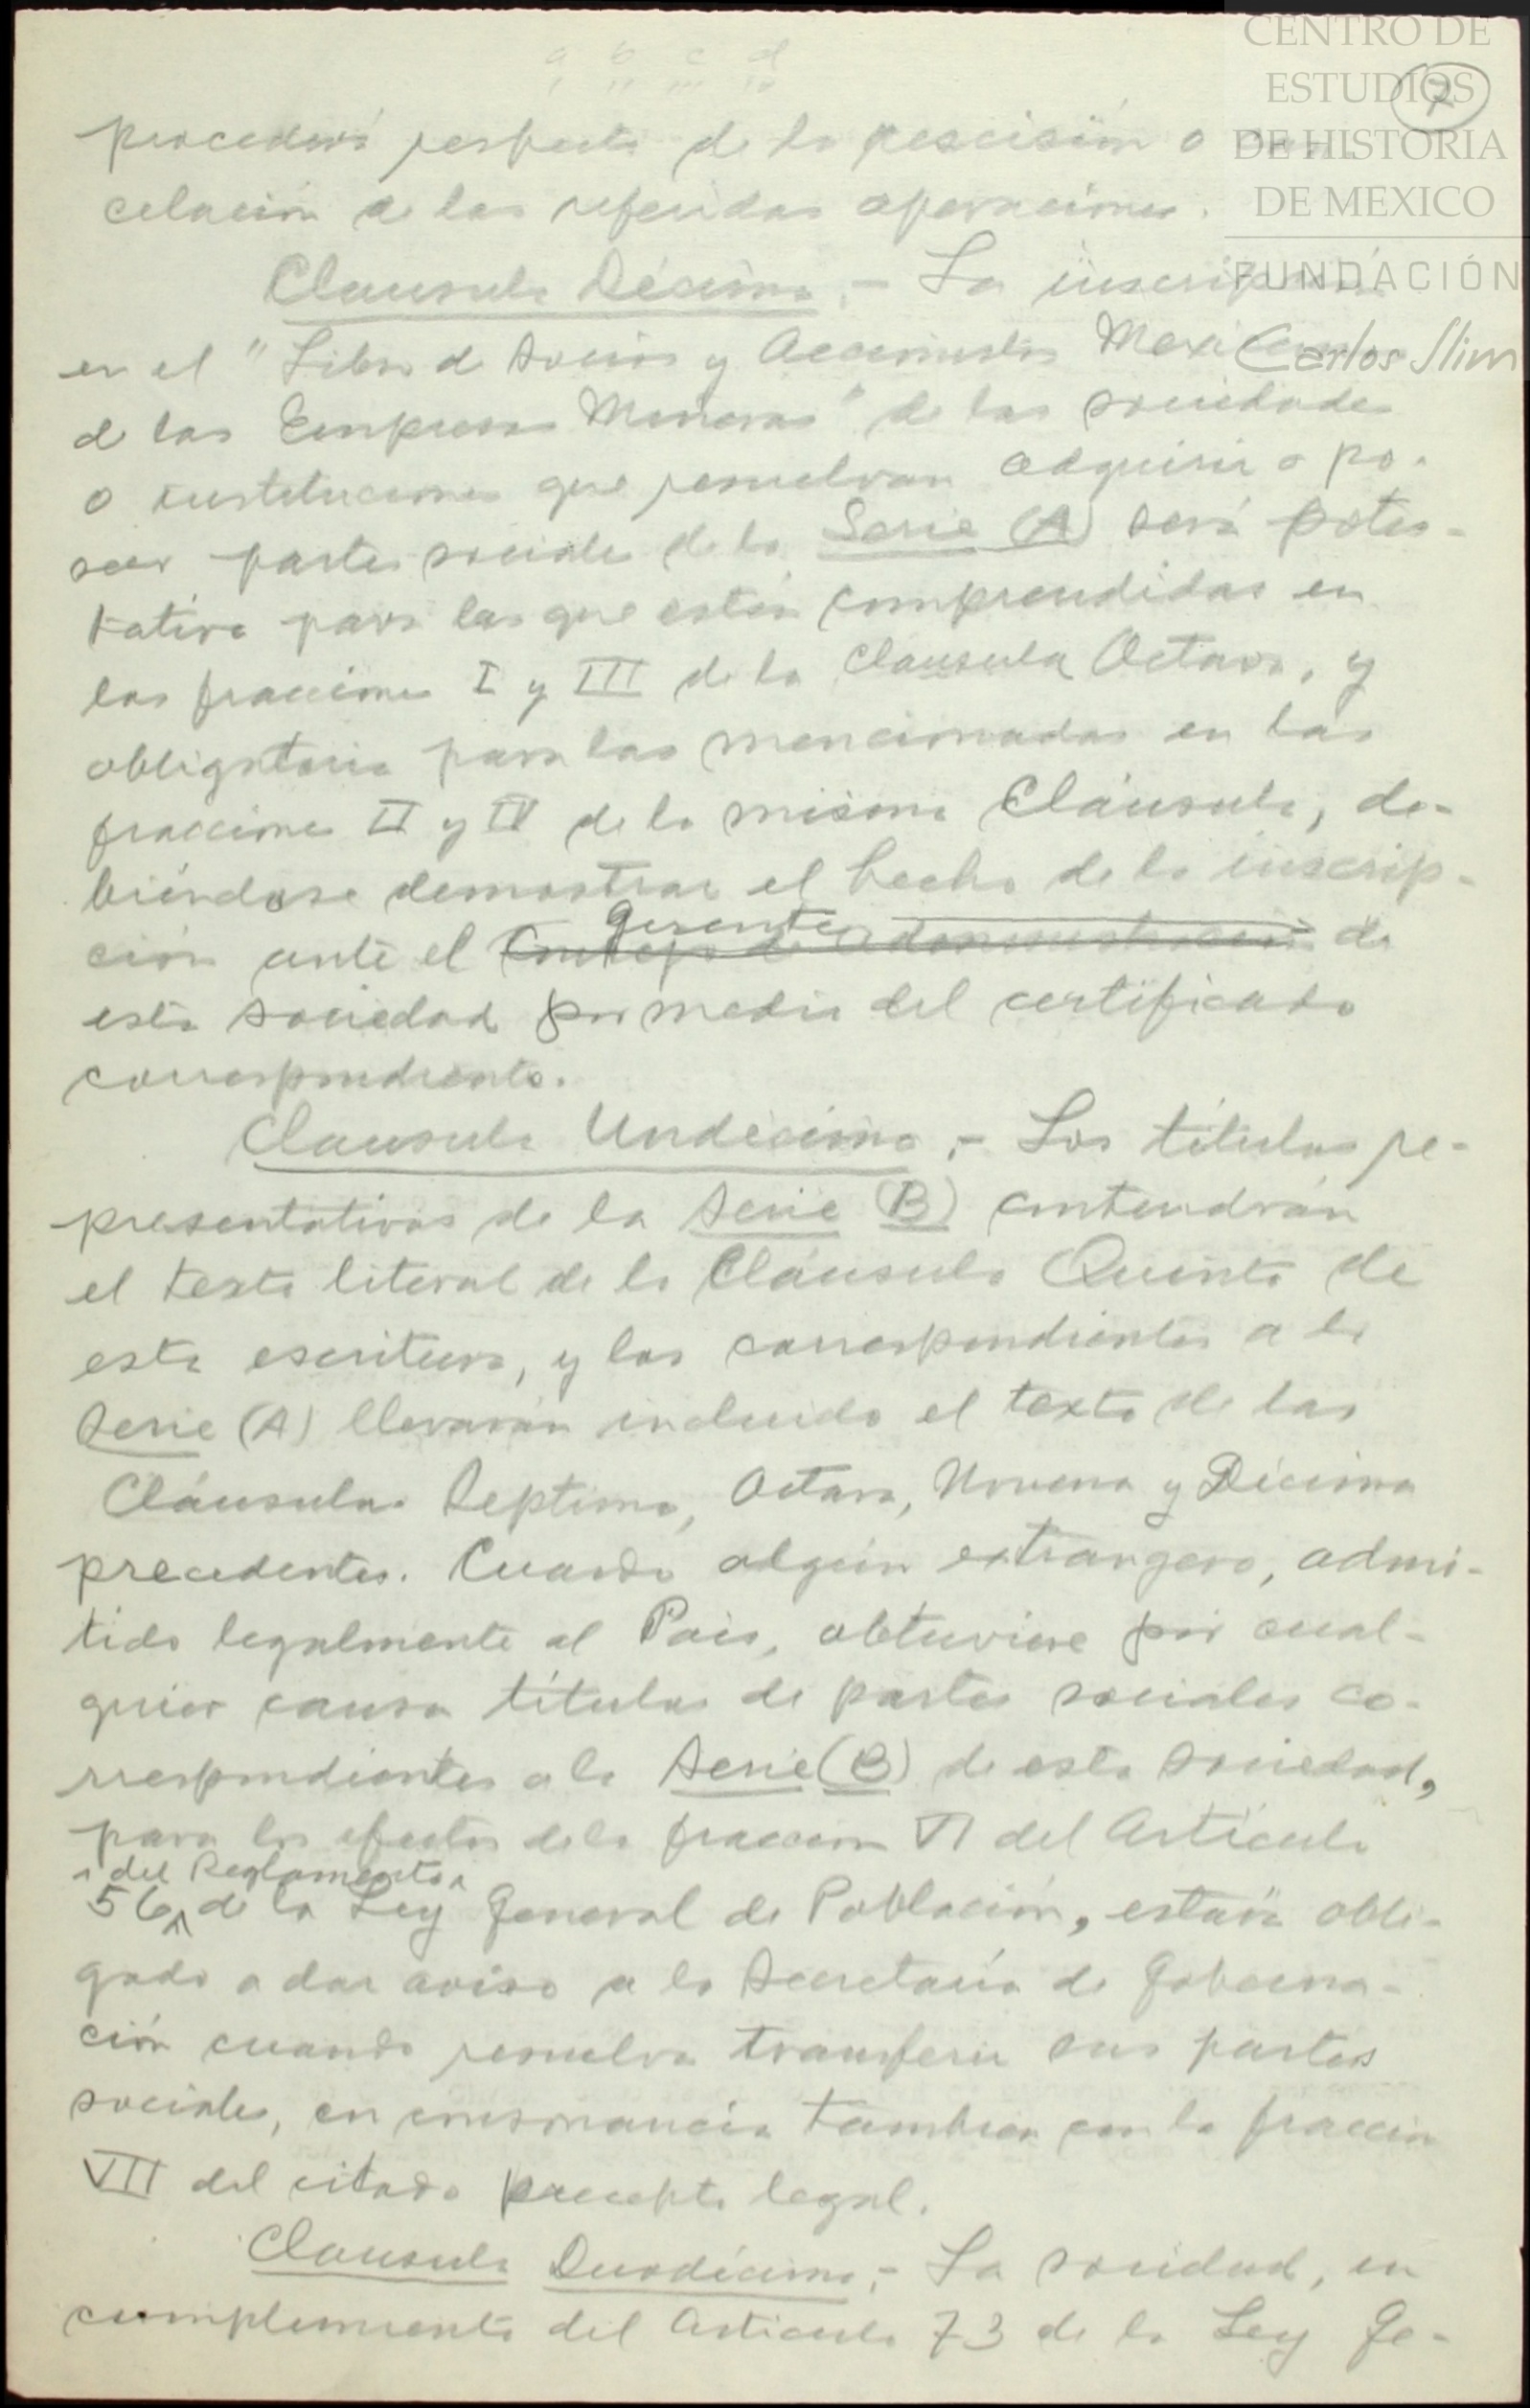 a b c d
I II III IV
CENTRO DE
ESTUDIOS
DE HISTORIA
DE MEXICO
FUNDACIÓN
Carlos Slim
procederá respecto de la rescisión o can-
celación de las referidas operaciones.
Clausula Décima.- La inscripción
en el "Libro de Socios y Accionistas Mexicanos
de las Empresas Mineras" de las sociedades
o instituciones que resuelvan adquirir o po-
seer partes sociales de la Serie (A) será potes-
tativa para las que estén comprendidas en
las fracciones I y III de la Clausula Octava, y
obligatoria para las mencionadas en las
fracciones II y IV de la misma Cláusula, de-
biéndose demostrar el hecho de la inscrip-
ción ante el Consejo de Administración de
Gerente
esta sociedad por medio del certificado
correspondiente.
Clausula Undécima.- Los títulos re-
presentativos de la Serie (B) contendrán
el texto literal de la Cláusula Quinta de
esta escritura, y los correspondientes a la
Serie (A) llevarán incluido el texto de las
Cláusulas Septima, Octava, Novena y Décima
precedentes. Cuando algún extrangero, admi-
tido legalmente al País, obtuviere por cual-
quier causa títulos de partes sociales co-
rrespondientes a la Serie (B) de esta sociedad,
para los efectos de la fraccion VI del Artículo
del Reglamento
56 de la Ley General de Población, estará obli-
gado a dar aviso a la Secretaría de Goberna-
ción cuando resuelva transferir sus partes
sociales, en consonancia tambien con la fraccion
VII del citado precepto legal.
Clausula Duodécima.- La sociedad, en
cumplimiento del Articulo 73 de la Ley Ge-